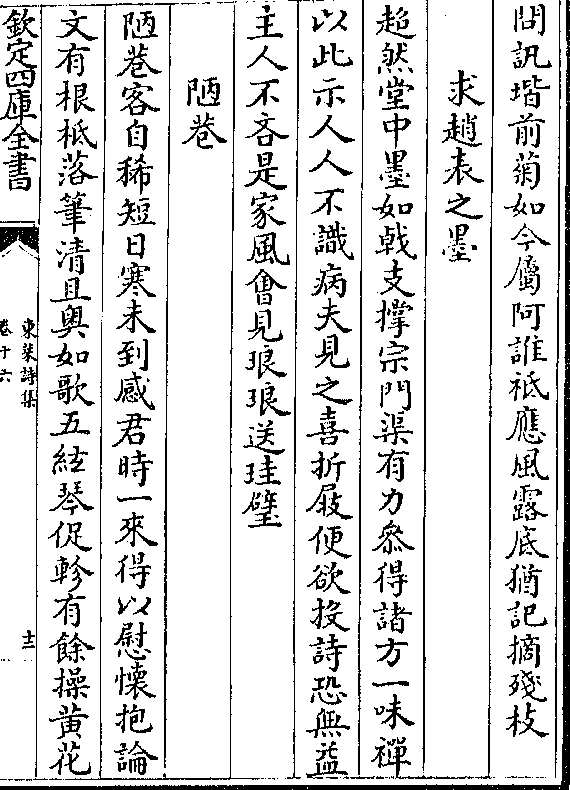 問訊堦前菊如今屬阿誰祗應風露底猶記摘殘枝
求趙表之墨
超然堂中墨如戟支撐宗門渠有力叅得諸方一味禪
以此示人人不識病夫見之喜折屐便欲投詩恐無益
主人不吝是家風會見琅琅送珪璧
陋巷
陋巷客自稀短日寒未到感君時一來得以慰懷抱論
文有根柢落筆清且奥如歌五絃琴促軫有餘操黄花
欽定四庫全書
東萊詩集
卷十六
十三